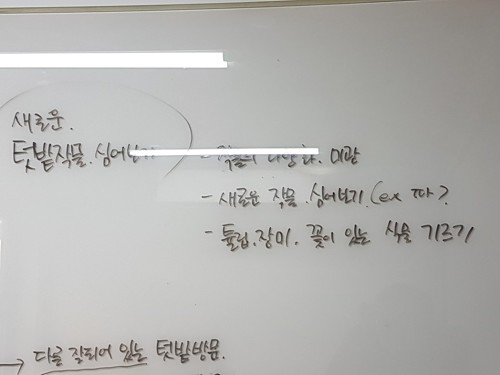 새로운.
텃밭작물.심어보기
- 작물의 다양화. 미관
- 새로운 작물.심어보기.(ex 파?
- 튤립.장미. 꽃이 있는 식물 기르기
→ 다를 잘되어 있는 텃밭방문.